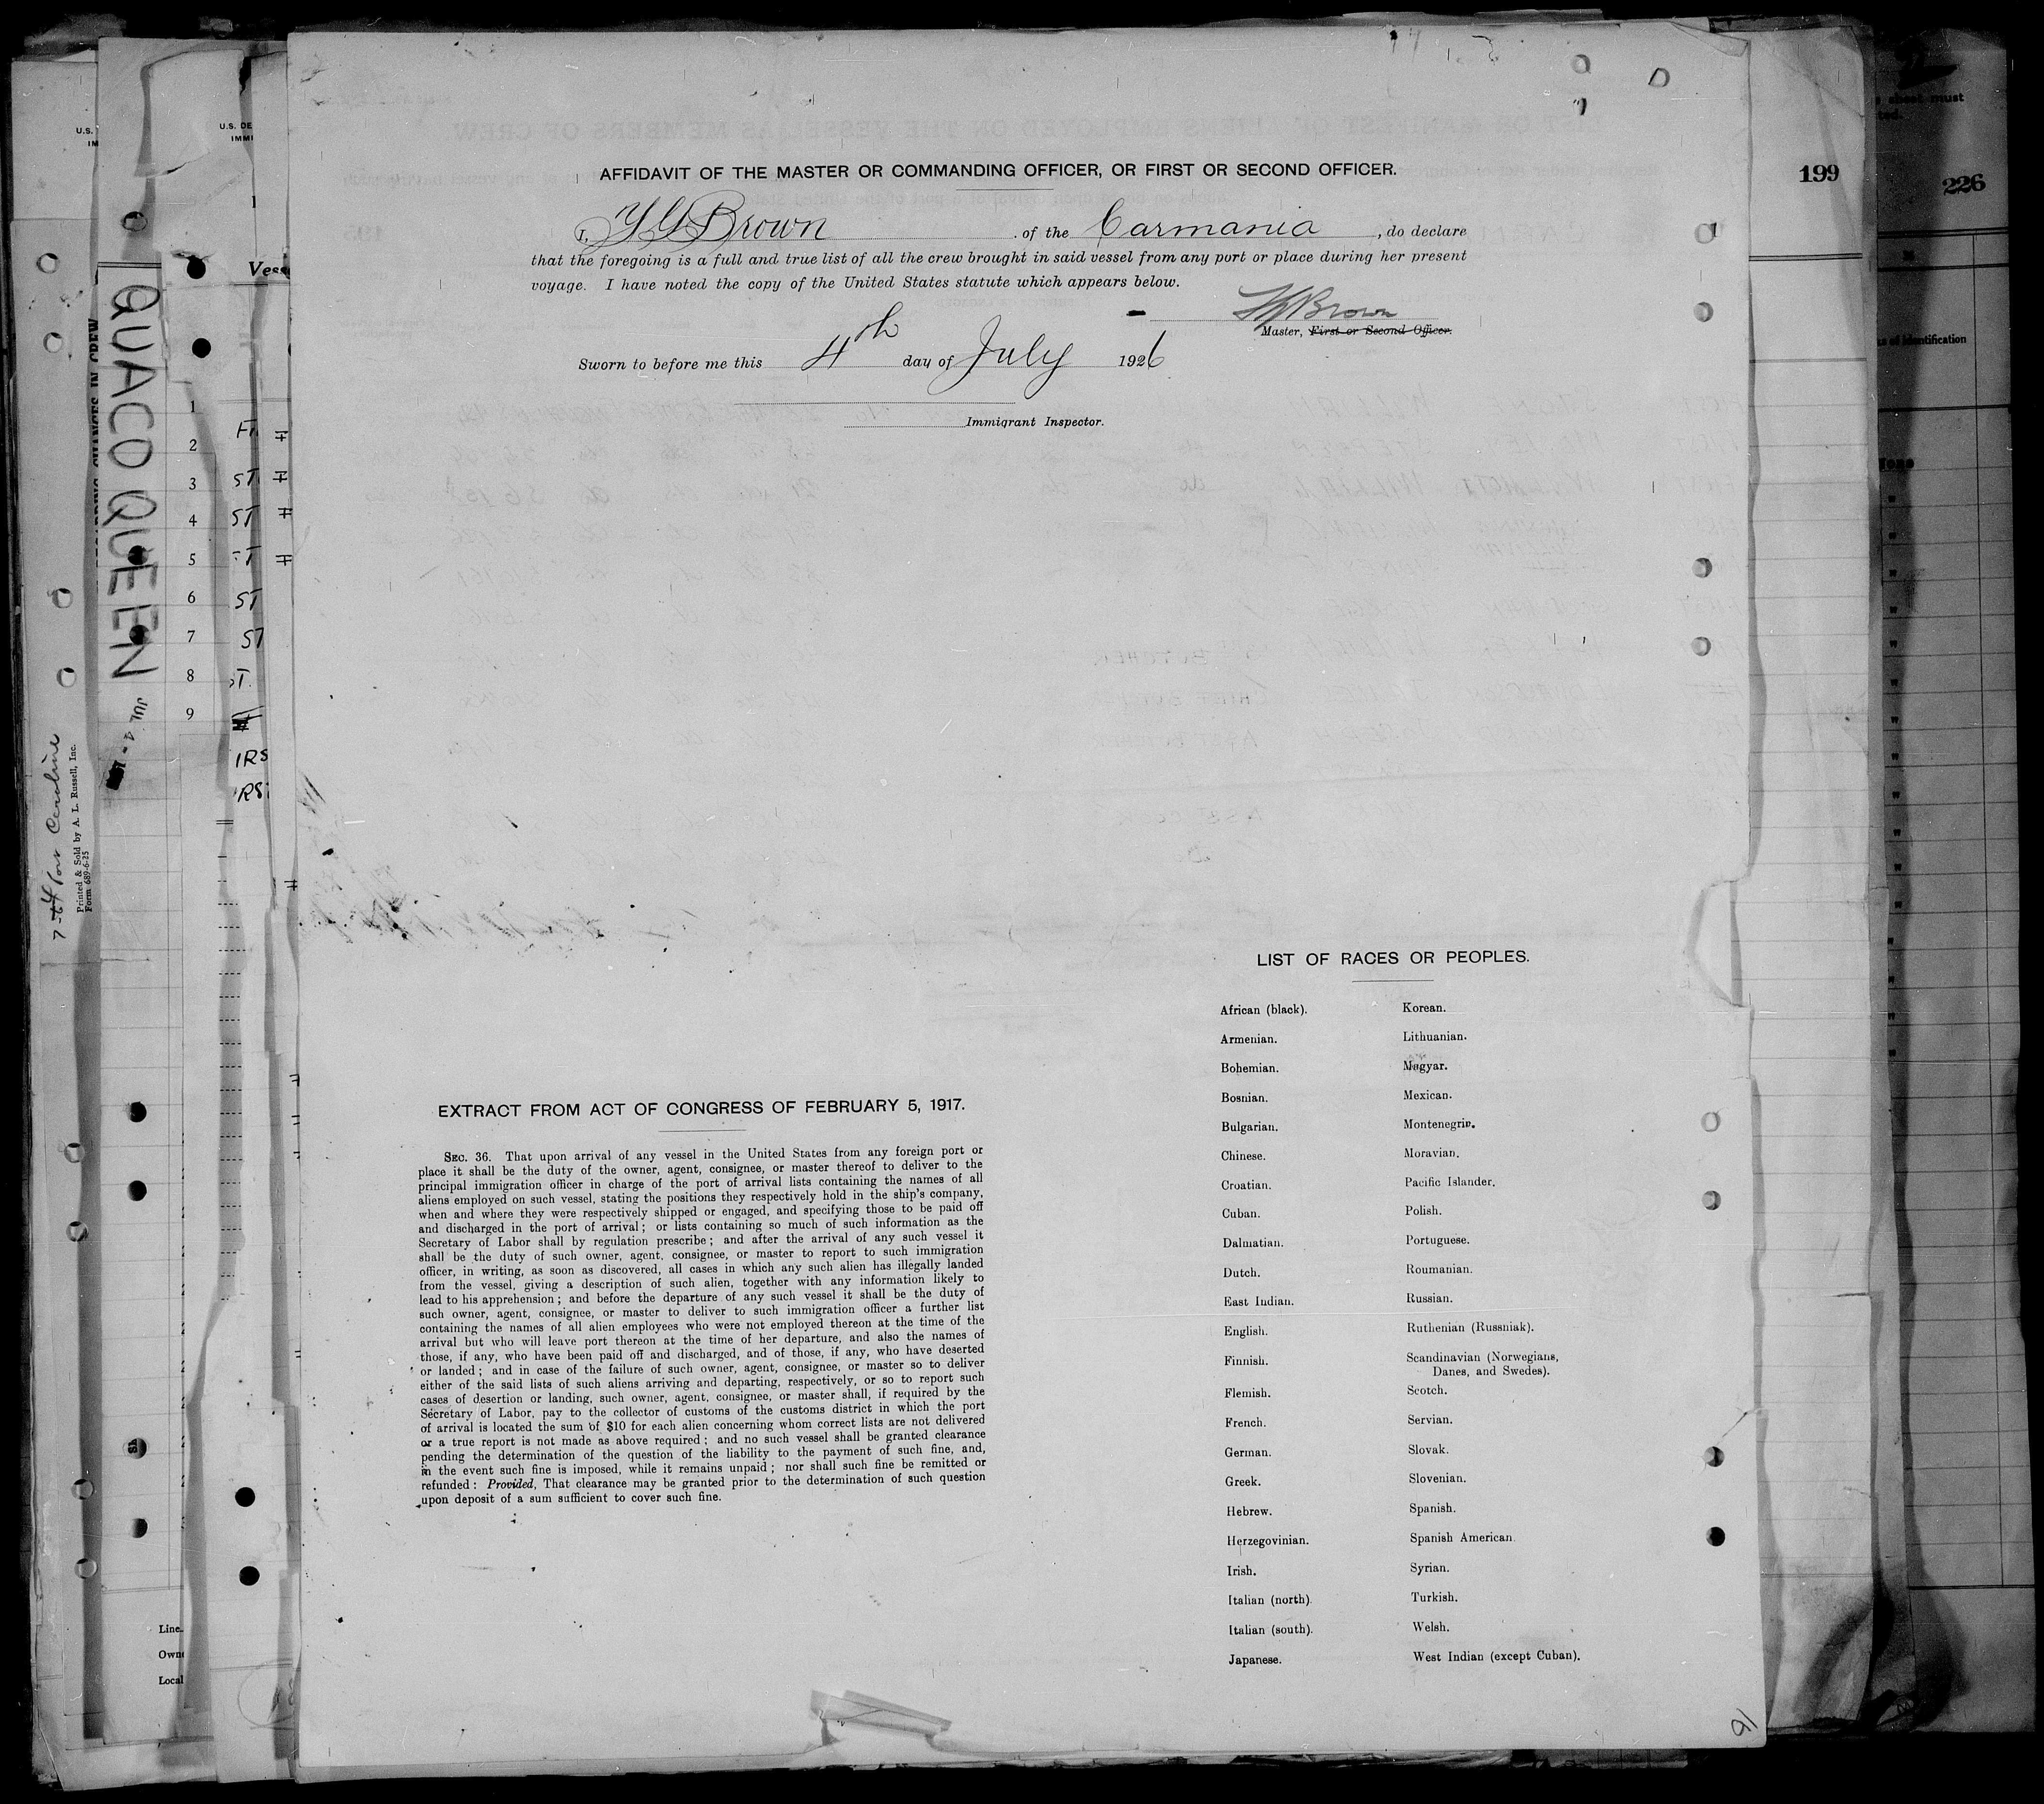 AFFIDAVIT OF THE MASTER OR COMMANDING OFFICER, OR FIRST OR SECOND OFFICER.
I, Brown of the Carmania, do declare
that the foregoing is a full and true list of all the crew brought in said vessel from any port or place during her present
voyage. I have noted the copy of the United States statute which appears below.
Brown
Master, First or Second Officer.
Sworn to before me this 4th day of July 1926
Immigrant Inspector.
199
226
sheet must
Identification
U.S.
IM
U.S. DE
IMMI
QUACO QUEEN
REGARDING CHANGES IN CREW
Printed & Sold by A. L. Russell, Inc.
Form 689-6-25
1
2
3
4
5
6
7
8
9
ST
ST
ST
ST
IRS
Line
Own
Local
EXTRACT FROM ACT OF CONGRESS OF FEBRUARY 5, 1917.
SEC. 36. That upon arrival of any vessel in the United States from any foreign port or
place it shall be the duty of the owner, agent, consignee, or master thereof to deliver to the
principal immigration officer in charge of the port of arrival lists containing the names of all
aliens employed on such vessel, stating the positions they respectively hold in the ship's company,
when and where they were respectively shipped or engaged, and specifying those to be paid off
and discharged in the port of arrival; or lists containing so much of such information as the
Secretary of Labor shall by regulation prescribe; and after the arrival of any such vessel it
shall be the duty of such owner, agent, consignee, or master to report to such immigration
officer, in writing, as soon as discovered, all cases in which any such alien has illegally landed
from the vessel, giving a description of such alien, together with any information likely to
lead to his apprehension; and before the departure of any such vessel it shall be the duty of
such owner, agent, consignee, or master to deliver to such immigration officer a further list
containing the names of all alien employees who were not employed thereon at the time of the
arrival but who will leave port thereon at the time of her departure, and also the names of
those, if any, who have been paid off and discharged, and of those, if any, who have deserted
or landed; and in case of the failure of such owner, agent, consignee, or master so to deliver
either of the said lists of such aliens arriving and departing, respectively, or so to report such
cases of desertion or landing, such owner, agent, consignee, or master shall, if required by the
Secretary of Labor, pay to the collector of customs of the customs district in which the port
of arrival is located the sum of $10 for each alien concerning whom correct lists are not delivered
or a true report is not made as above required; and no such vessel shall be granted clearance
pending the determination of the question of the liability to the payment of such fine, and,
in the event such fine is imposed, while it remains unpaid; nor shall such fine be remitted or
refunded: Provided, That clearance may be granted prior to the determination of such question
upon deposit of a sum sufficient to cover such fine.
LIST OF RACES OR PEOPLES.
African (black).
Armenian.
Bohemian.
Bosnian.
Bulgarian.
Chinese.
Croatian.
Cuban.
Dalmatian.
Dutch.
East Indian.
English.
Finnish.
Flemish.
French.
German.
Greek.
Hebrew.
Herzegovinian.
Irish.
Italian (north).
Italian (south).
Japanese.
Korean.
Lithuanian.
Magyar.
Mexican.
Montenegrin.
Moravian.
Pacific Islander.
Polish.
Portuguese.
Roumanian.
Russian.
Ruthenian (Russniak).
Scandinavian (Norwegians,
Danes, and Swedes).
Scotch.
Servian.
Slovak.
Slovenian.
Spanish.
Spanish American.
Syrian.
Turkish.
Welsh.
West Indian (except Cuban).
16